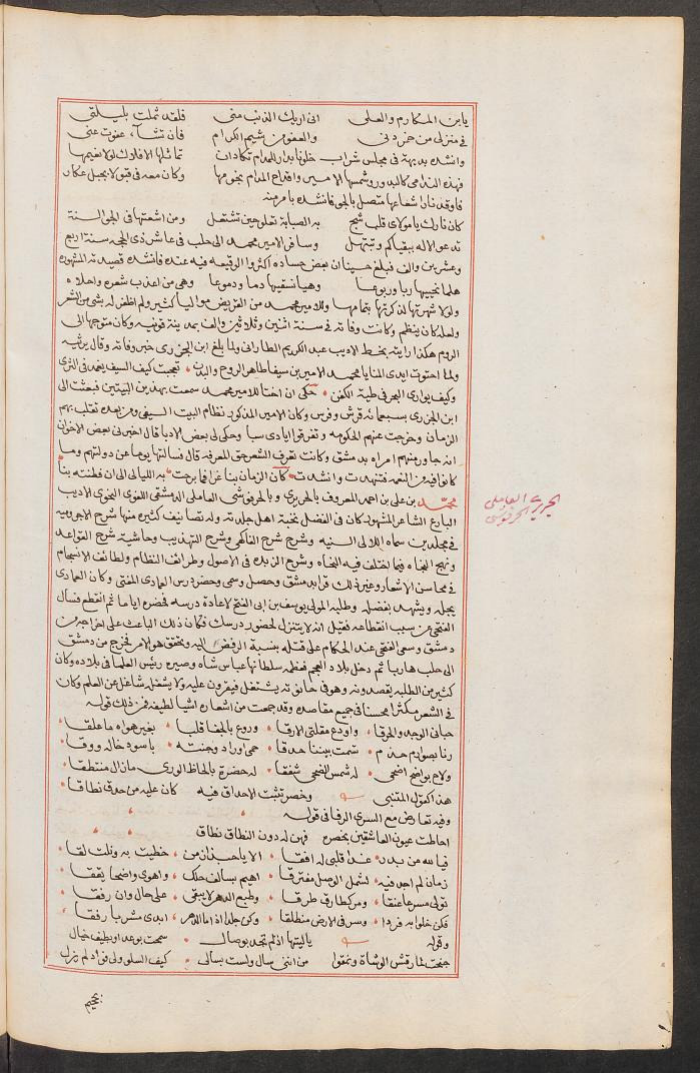 يا ابن المكارم والعلى انى اريك الذنب منى فلقد ثملت بليلتى
فى منزلى من خمر دنى والعفو من شيم الكرام فان تشأ عفوت عنى
وانشد بديهة فى مجلس شراب
فهذه الندامى كالبدور وشمسها الامير واقداح المدام نجومها وكان معه فى قبولا بجبل عكار
فاوقد نارا شعاعها متصل بالجو فانشده بامر منه
كان نارك يا مولاى قلب شج به الصبابة تعلو حين تشتعل ومن اشعتها فى الجو السنة
تدعو الاله ببقياكم وتبتهل وسافر الامير محمد الى حلب فى عاشر ذى الحجة سنة اربع
وعشرين والف فبلغ حسينا ان بعض حساده اكثروا الوقيعه فيه عنده فانشده قصيدته المشهورة
هلما نحييها ربا وربوعا وهيا نسقيها دما ودموعا وهى من اعذب شعره واحلاه
ولولا شهرتها لذكرتها بتمامها وللامير محمد من القريض مواليا كثير ولم اظفر له بشى من الشعر
ولعله كان ينظم وكانت وفاته فى سنة اثنين وثلاثين والف بمدينة قونيه وكان متوجها الى
الروم هكذا رايته بخط الاديب عبد الكريم الطارانى ولما بلغ ابن الجزرى خبر وفاته وقال يرثيه
ولما احتوت ايدى المنايا محمد الامير بن سيفا طاهر الروح والبدن تعجبت كيف السيف يغمد فى الثرى
وكيف يوارى البحر فى طية الكفن حكى ان اختا للامير محمد سمعت بهذين البيتين فبعثت الى
ابن الجزرى بسبعمائة قرش وفرس وكان الامير المذكور نظام البيت السيفى ومن بعده تقلب بهم
الزمان وخرجت عنهم الحكومه وتفرقوا ايادى سبا وحكى لى بعض الادبا قال اخبرنى بعض الاخوان
انه جاور منهم امراه بدمشق وكانت تعرف الشعر حق المعرفه قال فسالتها يوما عن دولتهم وما
كانوا فيه من النعمة فتنهدت وانشدت كان الزمان بنا غرا فما برحت به الليالى الى ان فطنته بنا
محمد بن على بن احمد المعروف بالحريرى وبالحرفوشى العاملى الدمشقى اللغوى النحوى الاديب
البارع الشاعر المشهور كان فى الفضل نخبة اهل جلدته وله تصانيف كثيره منها شرح الاجروميه
فى مجلدين سماه اللالى السنيه وشرح شرح الفاكهى وشرح التهذيب وحاشية شرح القواعد
ونهج النجاه فيما يختلف فيه النحاه وشرح الزبدة فى الاصول وطرائف النظام ولطائف الانسجام
فى محاسن الاشعار وغير ذلك قرا بدمشق وحصل وسمى وحضر درس العمادى المفتى وكان العمادى
يجله ويشهد بفضله وطلبه المولى يوسف بن ابى الفتح لاعادة درسه فحضره اياما ثم انقطع فسال
الفتحى من سبب انقطاعه فقيل انه لا يتنزل لحضور درسك فكان ذلك الباعث على اخراجه من
دمشق وسعى الفتحى عند الحكام على قتله بنسبة الرفض اليه وتحقق هو الامر فخرج من دمشق
الى حلب هاربا ثم دخل بلاد العجم فعظمه سلطانها عباس شاه وصيره رئيس العلما فى بلاده وكان
كثير من الطلبه يقصدونه وهو فى حانوته يشتغل فيقرون عليه ولا يشغله شاغل عن العلم وكان
فى الشعر مكثرا محسنا فى جميع مقاصده وقد جمعت من اشعاره اشيا لطيفه فمن ذلك قوله
حبانى الوجد والحرقا واودع مقلتى الارقا وروع بالجفا قلبا بغير هواه ما علقا
رنا بصوارم حذم تسمت بيننا حدقا حمى اوراد وجنته باسود خاله ووقا
ولاح بواضح اضحى له شمس الضحى شفقا له حضرة بالحاظ الورى ما زال منتطقا
هذا كقول المتنبى وخصر تثبت الاحداق فيه كان عليه من حدق نطاقا
وفيه تعارض مع السرى الرفا فى قوله
احاطت عيون العاشقين بخصره فهن له دون النطاق نطاق
فيا لله من بدر غدا قلبى له افقا الا يا حبذا زمن خطيت به ونلت لقا
زمان لم اجد فيه لشمل الوصل مفترقا اهيم بسالف حلك واهوى واضحا يققا
تولى مسرعا عنقا ومر كطارق طرقا وطبع الدهر لا يبقى على حال وان رفقا
فكن خلوا به فردا وسر فى الارض منطلقا وكن جلدا اذا ما الدهر ابدى مشربا رنقا
وقوله ياليتها اذ لم تجد بوصال سمحت بوعد او بطيف خيال
جنحت لما رقش الوشاة ونمقوا من اننى سال ولست بسالى كيف السلو ولى فواد لم يزل
الحريرى العاملى
الحرفوشى
بجحيم